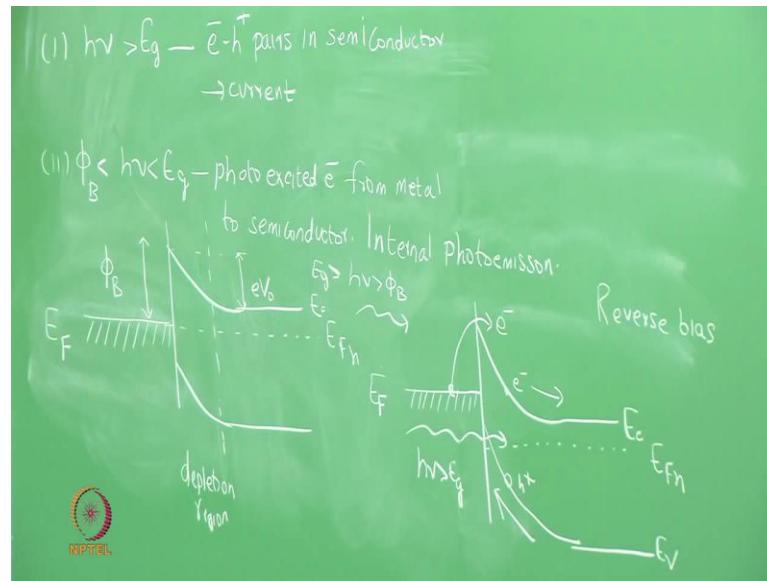 (I) hν > Eg — e̅-h⁺ pairs in semiconductor
→ current
(II) ϕ_B < hν < Eg — photoexcited e̅ from metal
to semiconductor. Internal photoemisson.
ϕ_B
eV₀
E_F
E_c
E_Fn
depletion
region
Eg > hν > ϕ_B
Reverse bias
e⁻
E_F
e⁻ →
E_c
E_Fn
hν>Eg
h⁺
E_V
NPTEL